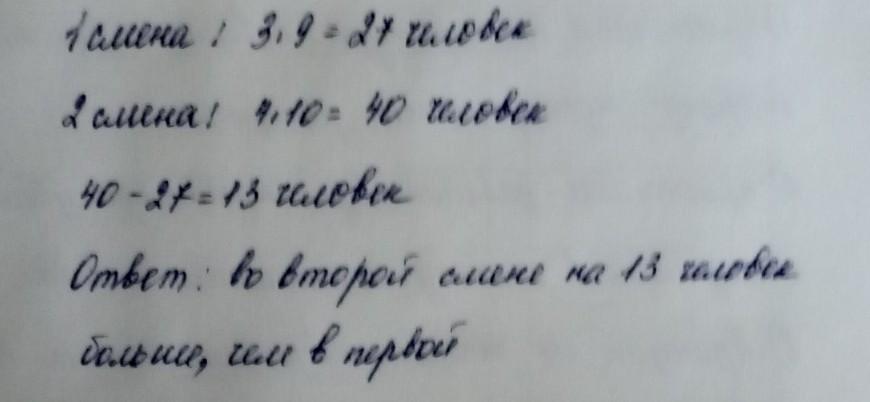 1 смена: 3·9 = 27 человек
2 смена: 4·10 = 40 человек
40 - 27 = 13 человек
Ответ: во второй смене на 13 человек
больше, чем в первой